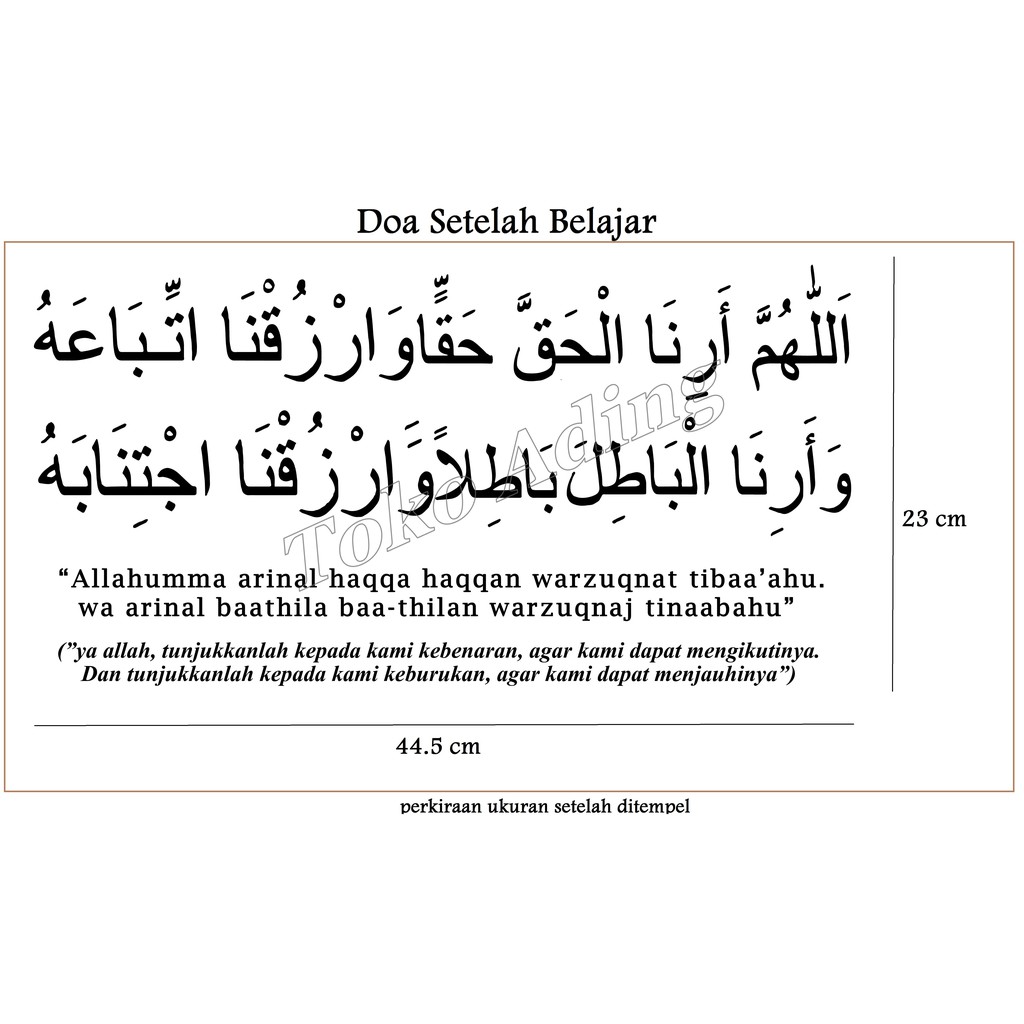 Doa Setelah Belajar
اَللّٰهُمَّ أَرِنَا الْحَقَّ حَقًّاوَارْزُقْنَا اتِّبَاعَهُ
وَأَرِنَا الْبَاطِلَ بَاطِلاًوَارْزُقْنَا اجْتِنَابَهُ
Toko Ading
23 cm
“Allahumma arinal haqqa haqqan warzuqnat tibaa’ahu.
wa arinal baathila baa-thilan warzuqnaj tinaabahu”
(”ya allah, tunjukkanlah kepada kami kebenaran, agar kami dapat mengikutinya.
Dan tunjukkanlah kepada kami keburukan, agar kami dapat menjauhinya”)
44.5 cm
perkiraan ukuran setelah ditempel